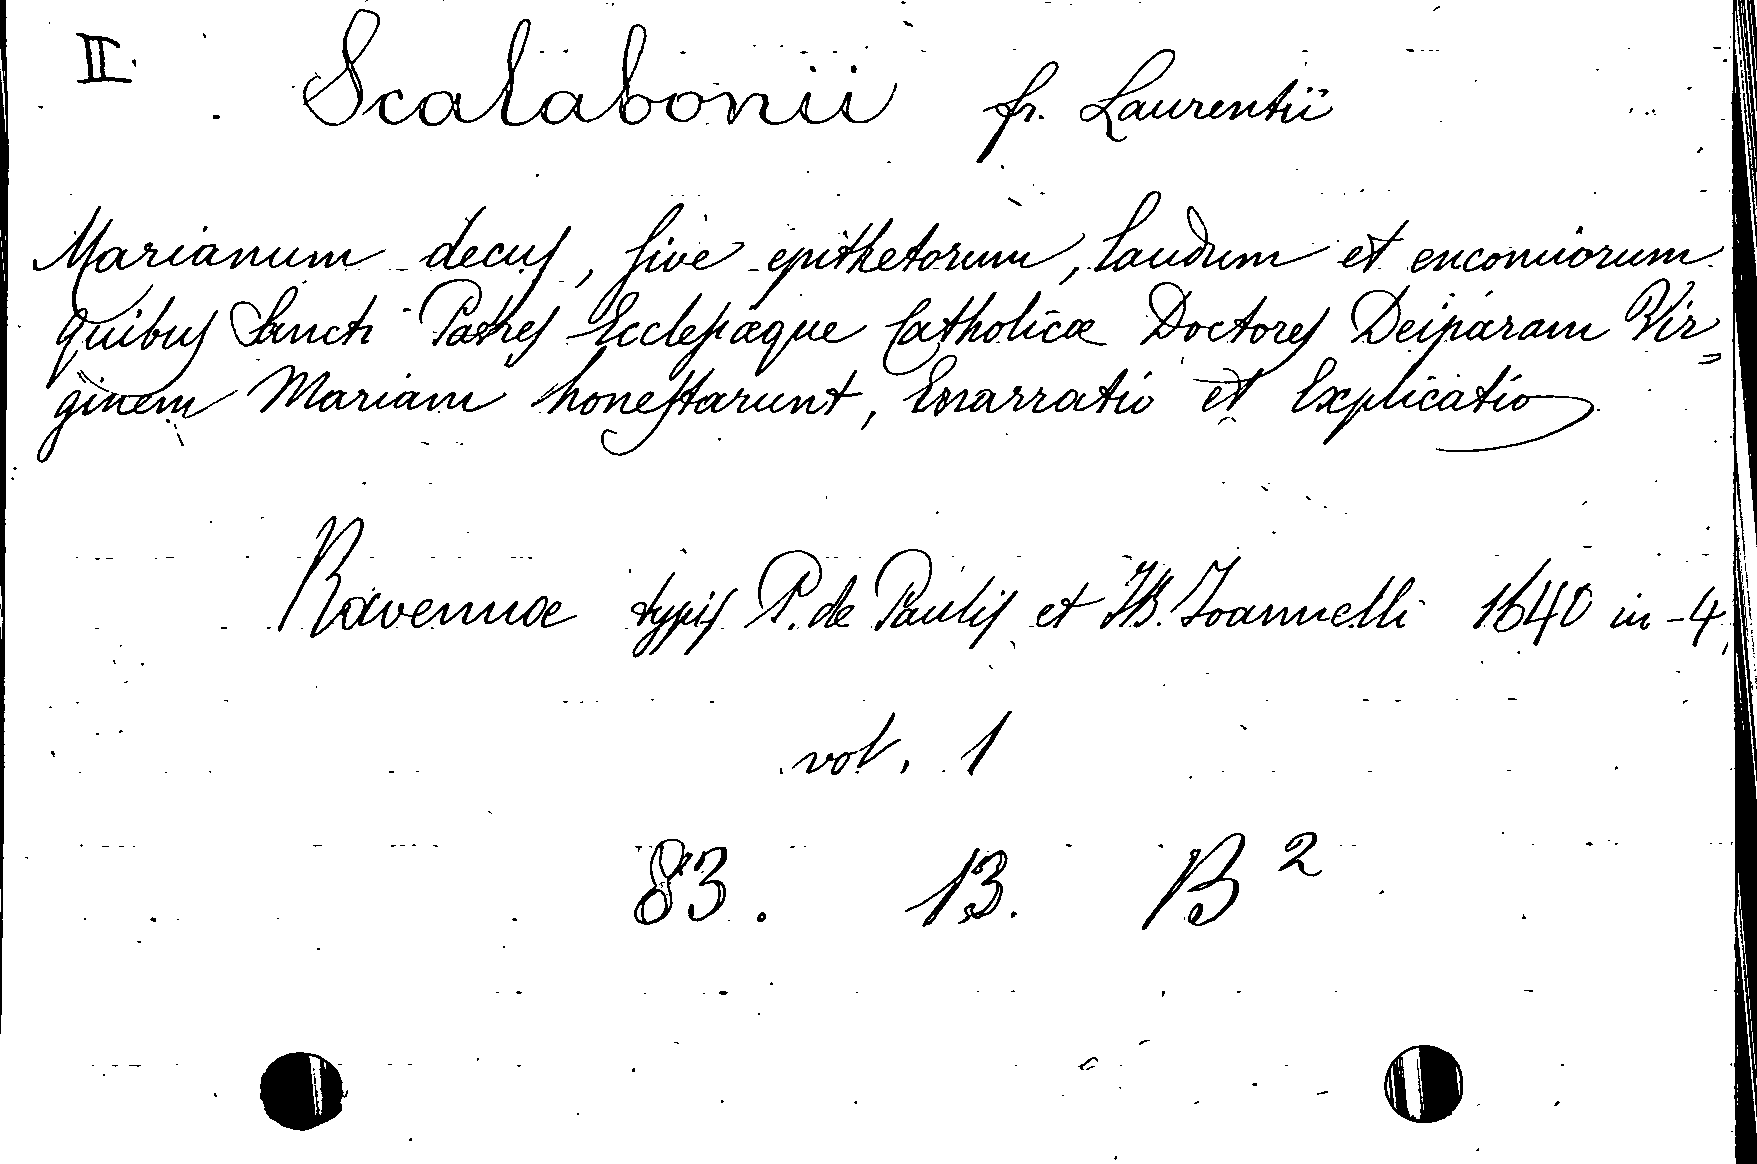 II. Scalabonii fr. Laurentii
Marianum decus, sive epithetorum, laudum et encomiorum
quibus Sancti Patres Ecclesiæque Catholicæ Doctores Deiparam Vir=
ginem Mariam honestarunt, Enarratio et Explicatio
Ravennæ typis P. de Paulis et JB. Joannelli 1640 in-4
vol. 1
83. 13. B²